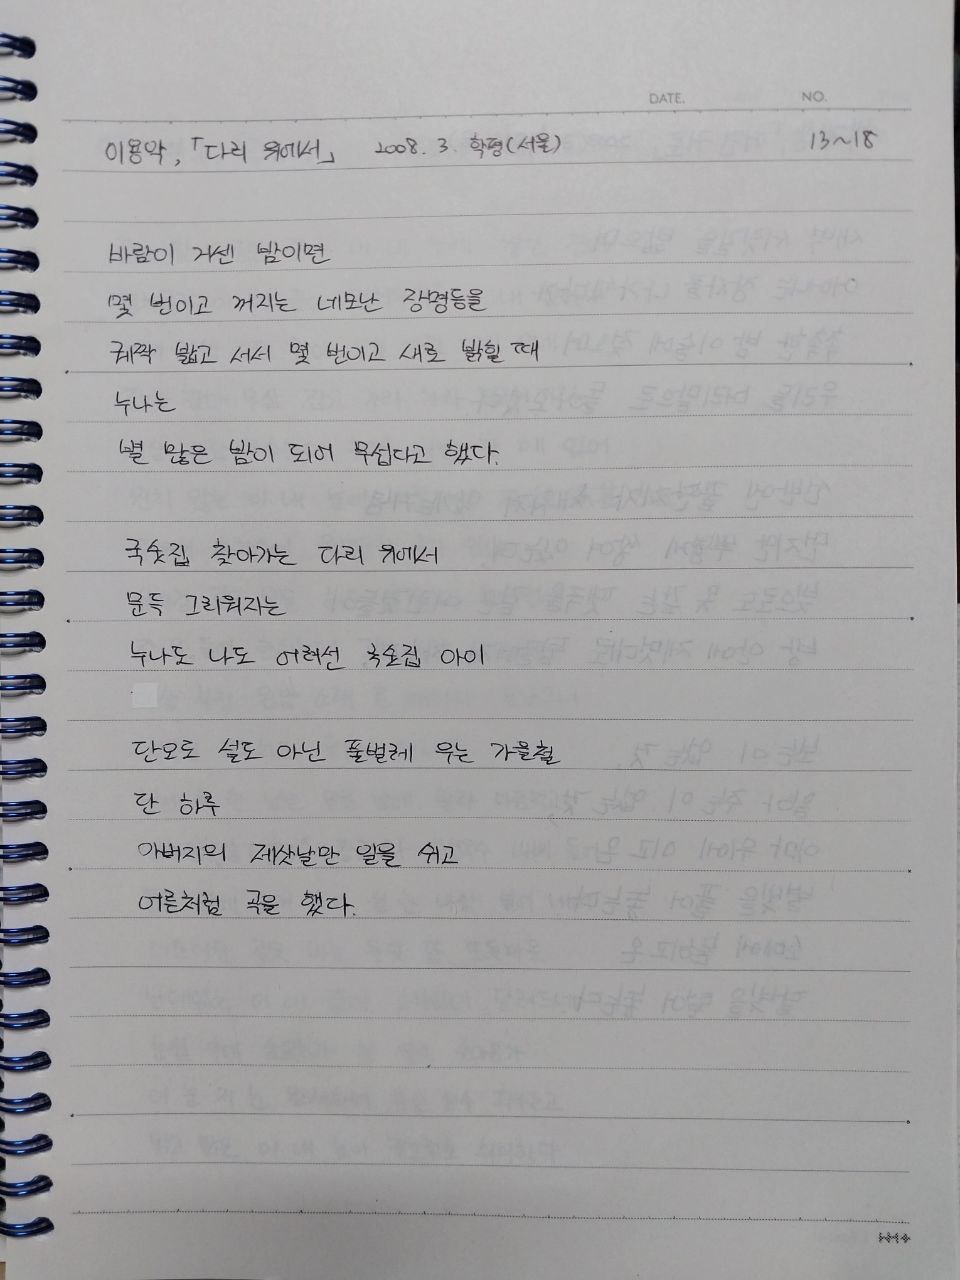 DATE. NO.
이용악, 「다리 위에서」 2008. 3. 학평(서울) 13~18
바람이 거센 밤이면
몇 번이고 꺼지는 네모난 장명등을
궤짝 밟고 서서 몇 번이고 새로 밝힐 때
누나는
별 많은 밤이 되어 무섭다고 했다.
국숫집 찾아가는 다리 위에서
문득 그리워지는
누나도 나도 어려선 국숫집 아이
단오도 설도 아닌 풀벌레 우는 가을철
단 하루
아버지의 제삿날만 일을 쉬고
어른처럼 곡을 했다.